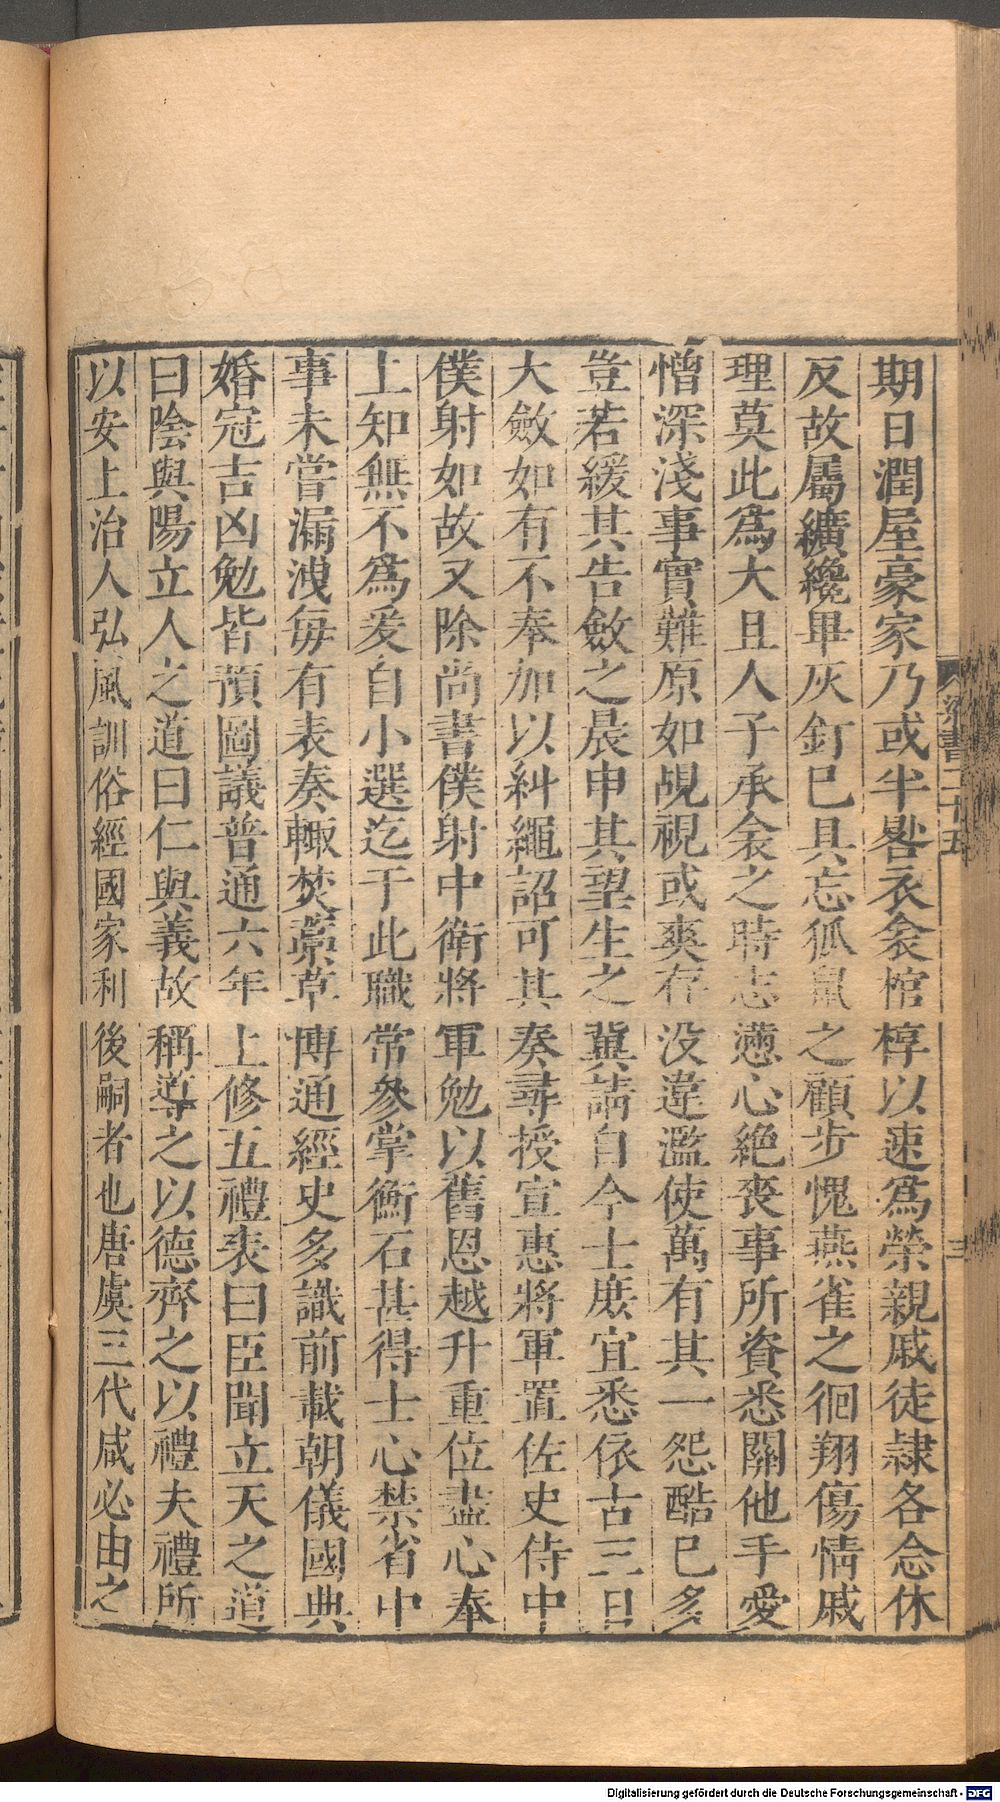 期日潤屋豪家乃或半晷衣衾棺椁以速爲榮親戚徒隸各念休
反故屬纊纔畢灰釘巳具忘狐鼠之顧步愧燕雀之徊翔傷情戚
理莫此爲大且人子承衾之時志懣心絶喪事所資悉關他手愛
憎深淺事實難原如覘視或爽存没違濫使萬有其一怨酷巳多
豈若緩其告斂之晨申其望生之冀請自今士庻宜悉依古三日
大斂如有不奉加以糾繩詔可其奏尋授宣惠將軍置佐史侍中
僕射如故又除尚書僕射中衛將軍勉以舊恩越升重位盡心奉
上知無不爲爰自小選迄于此職常參掌衡石甚得士心禁省中
事未嘗漏洩每有表奏輙焚藁草博通經史多識前載朝儀國典
婚冠吉凶勉皆預圖議普通六年上修五禮表曰臣聞立天之道
曰陰與陽立人之道曰仁與義故稱導之以德齊之以禮夫禮所
以安上治人弘風訓俗經國家利後嗣者也唐虞三代咸必由之
梁書二十五
三
Digitalisierung gefördert durch die Deutsche Forschungsgemeinschaft - DFG